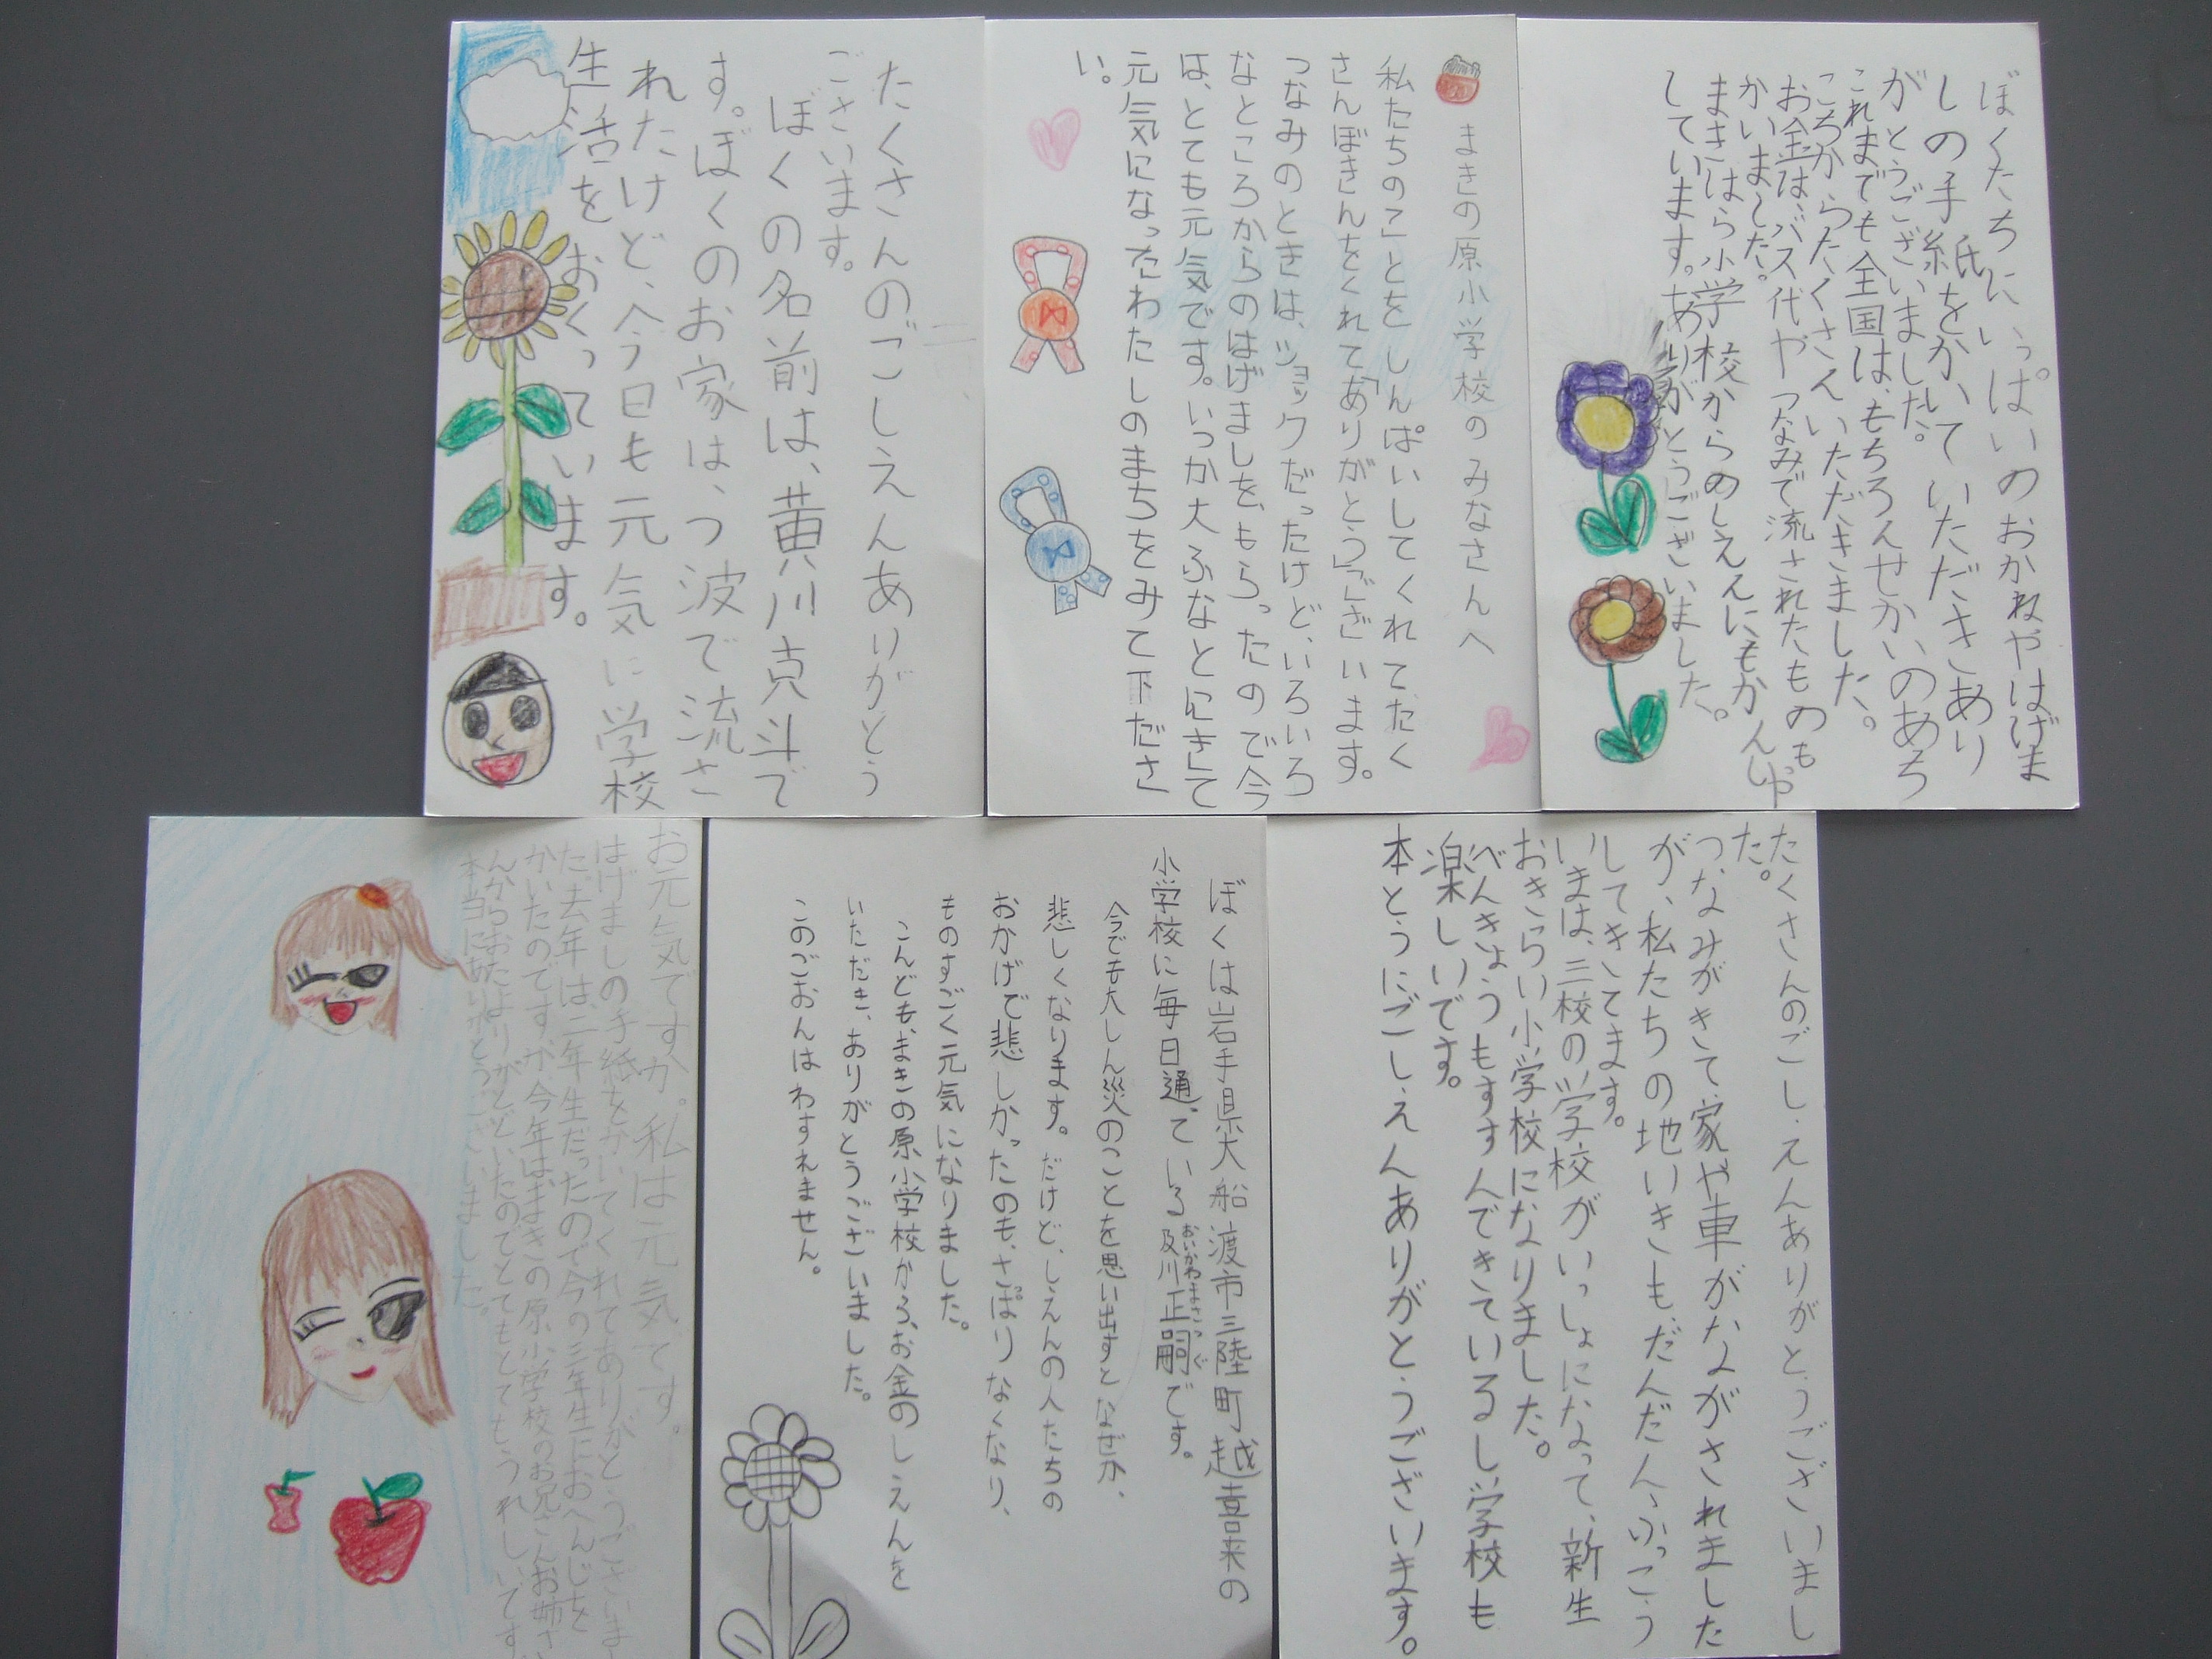 ぼくたちにいっぱいのおかねやはげま
しの手紙をかいていただきあり
がとうございました。
これまでも全国は、もちろんせかいのあち
こちからたくさんいただきました。
お金は、バス代やつなみで流されたものも
かいました。
まきはら小学校からのしえんにもかんしゃ
しています。ありがとうございました。
まきの原小学校のみなさんへ
私たちのことをしんぱいしてくれてたく
さんぼきんをくれて「ありがとう」ございます。
つなみのときは、ショックだったけど、いろいろ
なところからのはげましを、もらったので今
は、とても元気です。いつか大ふなとにきて
元気になったわたしのまちをみて下ださ
い。
たくさんのごしえんありがとう
ございます。
ぼくの名前は、黄川克斗で
す。ぼくのお家は、つ波で流さ
れたけど、今日も元気に学校
生活をおくっています。
たくさんのごしえんありがとうございまし
た。
つなみがきて、家や車がながされました
が、私たちの地いきも、だんだん、ふっこう
してきてます。
いまは、三校の学校がいっしょになって、新生
おきらい小学校になりました。
べんきょうもすすんできているし学校も
楽しいです。
本とうにごしえんありがとうございます。
ぼくは岩手県大船渡市三陸町越喜来の
小学校に毎日通っている及川正嗣です。
おいかわまさつぐ
今でも大しん災のことを思い出すとなぜか、
悲しくなります。だけど、しえんの人たちの
おかげで悲しかったのも、さっぱりなくなり、
ものすごく元気になりました。
こんども、まきの原小学校から、お金のしえんを
いただき、ありがとうございました。
このごおんはわすれません。
お元気ですか。私は元気です。
はげましの手紙をかいてくれてありがとうございまし
た。去年は、二年生だったので今の三年生におへんじを
かいたのですが、今年は、まきの原小学校のお兄さんお姉さ
んからおたよりがとどいたのでとてもとてもうれしいです
本当にありがとうございました。